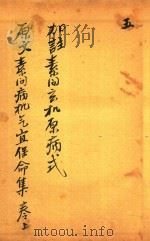 五
加註素问玄机原病式
原文素问病机气宜保命集 卷上